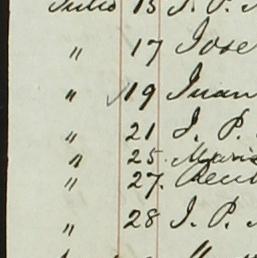 Julio 15 J. P.
" 17 Jose
" 19 Juan
" 21 J. P.
" 25. Maria
" 27.
" 28 J. P.